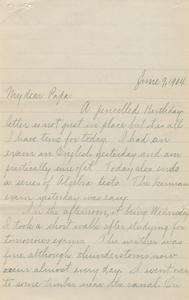 June 9, 1904
My dear Papa:
A pencilled Birthday
letter is not just in place but it is all
I have time for today. I had an
exam in English yesterday and am
practically out of it. Today also ends
a series of Algebra tests. The German
exam yesterday was easy.
In the afternoon, it being Wednesday
I took a short walk after studying for
tomorrows exams. The weather was
fine although thunderstorms now
occur almost every day. I went over
to some timber near the canal. On